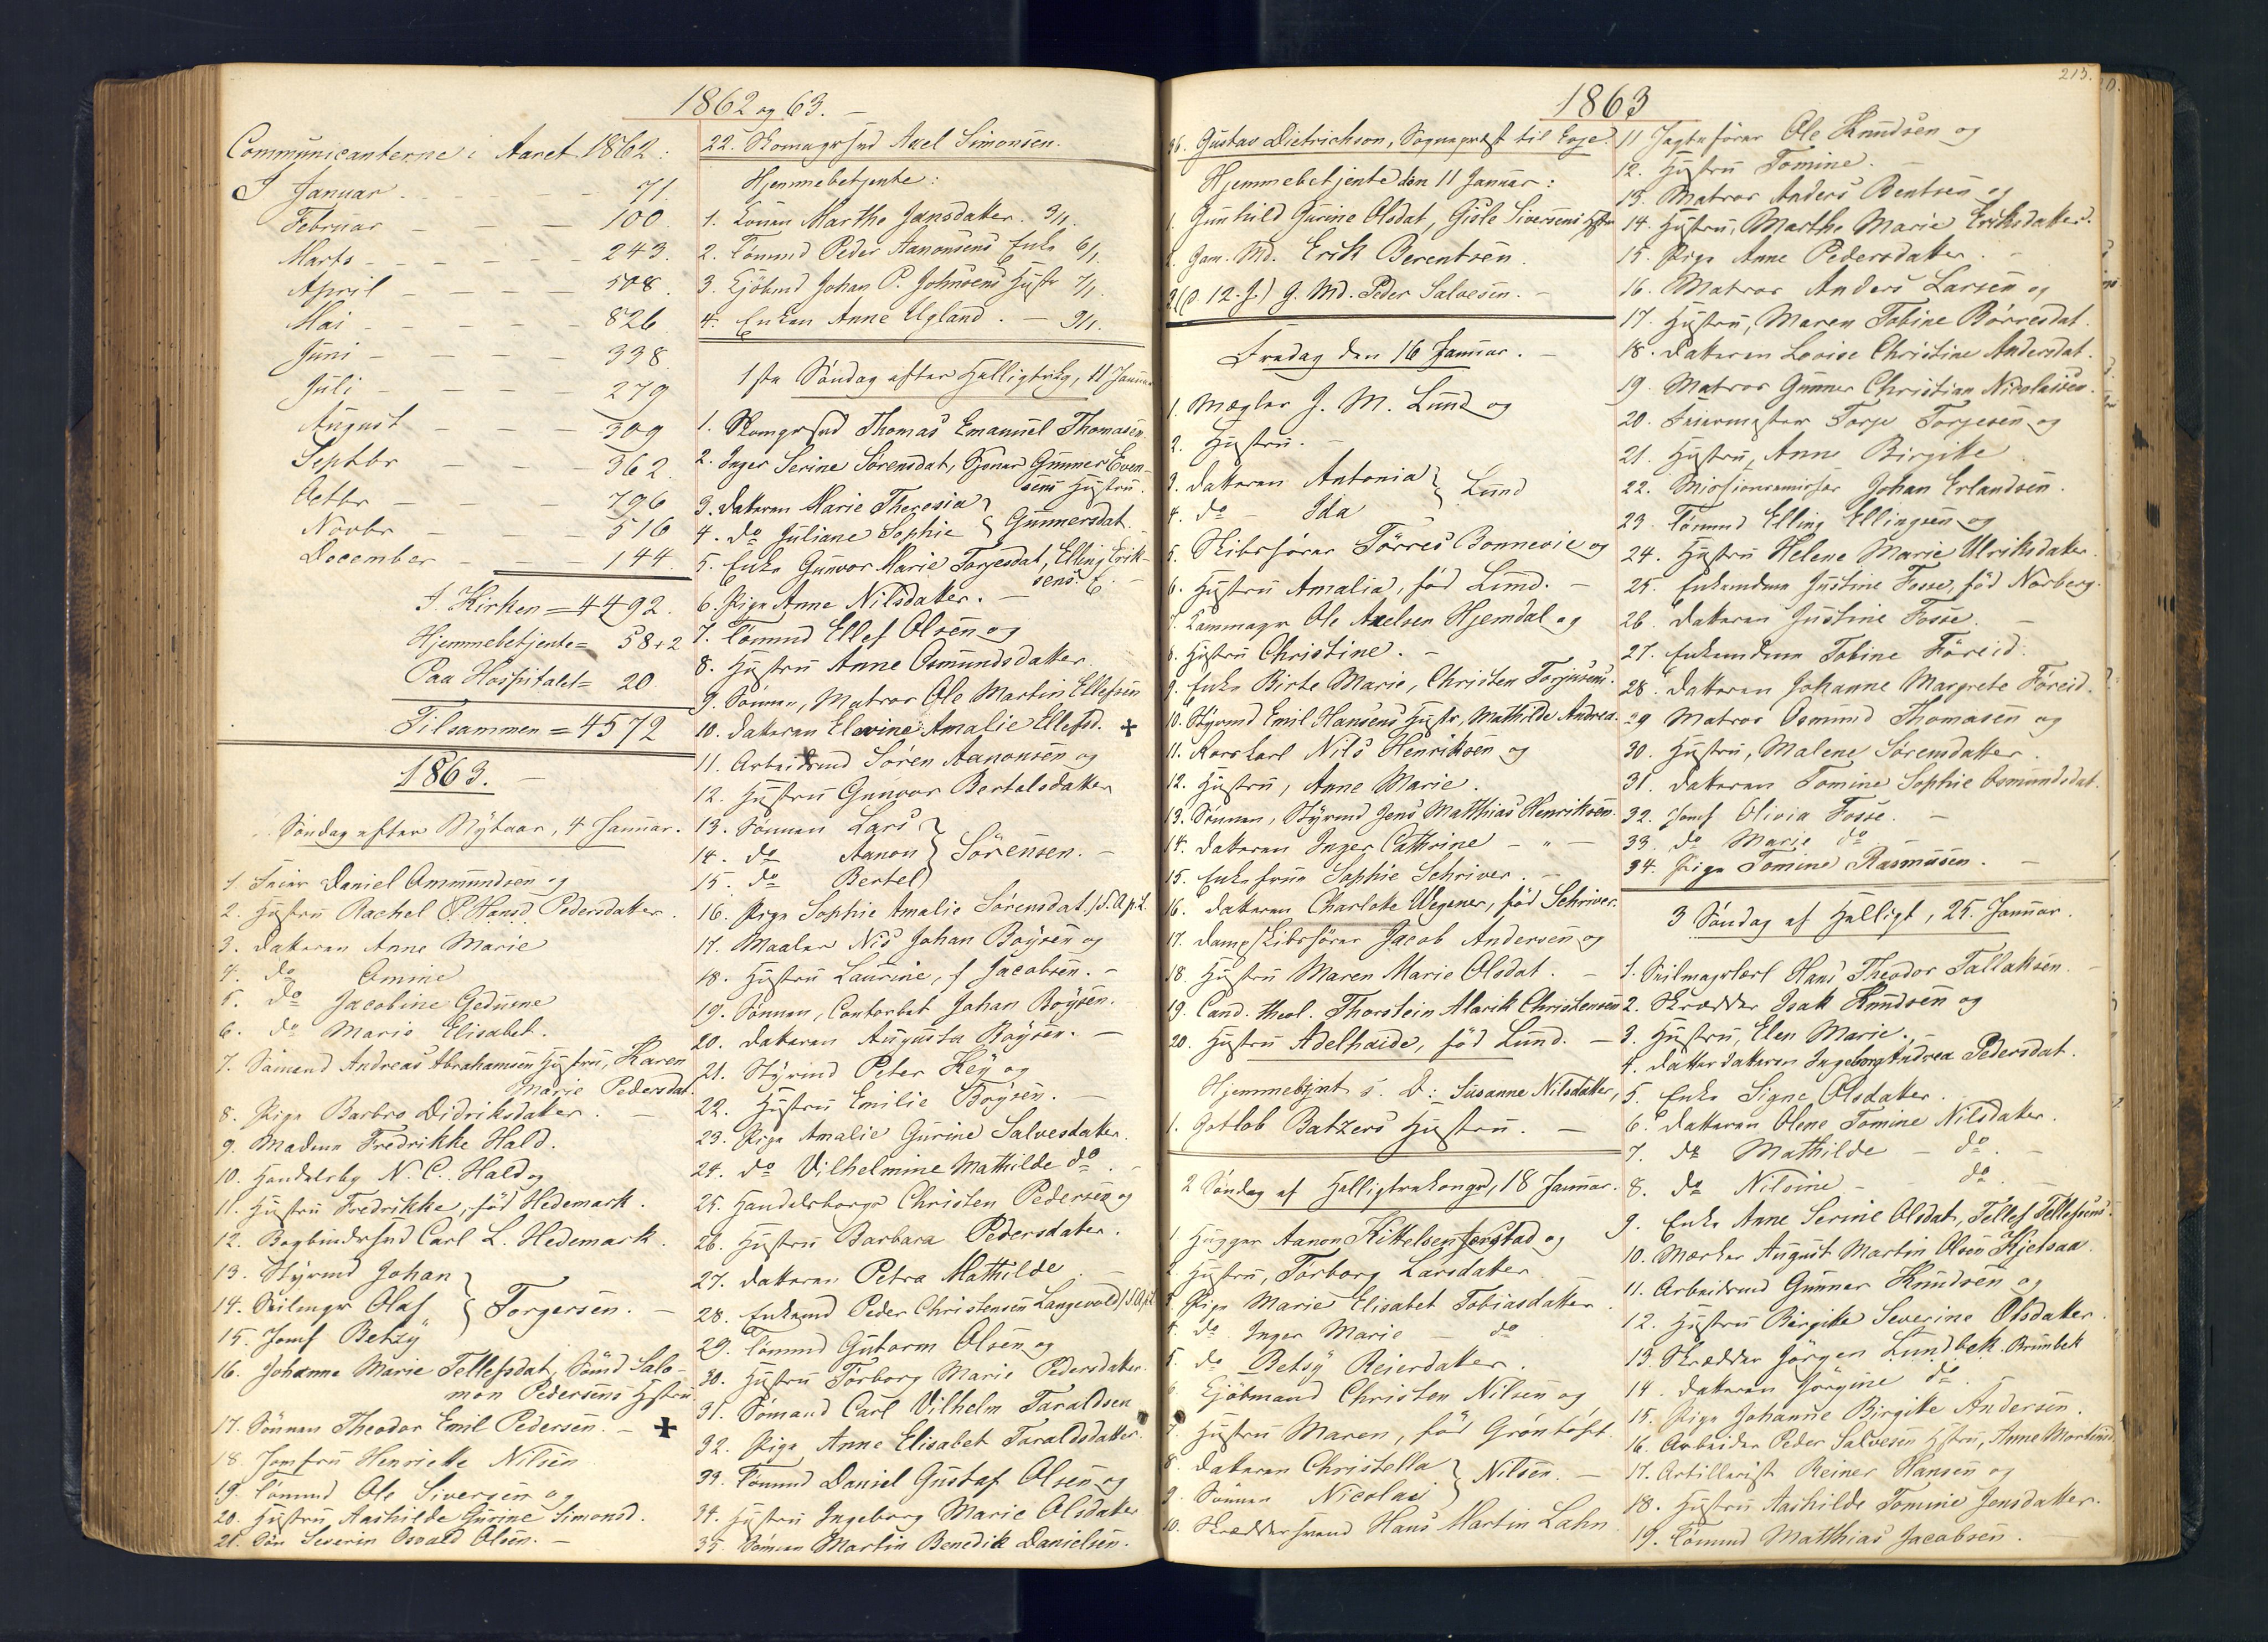 1862 og 63. –
Communicanterne i Aaret 1862:
I Januar – – – 71.
Februar – – – 100.
Marts – – – 243.
April – – – 508.
Mai – – – 826
Juni – – – 338
Juli – – – 279
August – – – 309
Septbr – – – 362
Octbr – – – 796
Novbr – – – 516
December – – – 144.
I Kirken = 4492.
Hjemmebetjente = 58+2
Paa Hospitalet = 20
Tilsammen = 4572
1863. –
Søndag efter Nytaar, 4 Januar.
1. Feier Daniel Ommundsen og
2. Hustru Rachel P. Hansd. Pedersdatter.
3. Datteren Anne Marie
4. do Omine
5. do Jacobine Gedusne
6. do Marie Elisabet.
7. Sømand Andreas Abrahamsen Hustru, Karen
Marie Pedersdat.
8. Pige Barbro Didriksdatter. –
9. Madme Fredrikke Hald.
10. Handelsbg N. C. Hald og
11. Hustru Fredrikke, fød Hedemark.
12. Bogbindersvd Carl L. Hedemark.
13. Styrmd Johan
14. Seilmgr Olaf } Torgersen. –
15. Jomf Betzÿ
16. Johanne Marie Tellefsdat, Sømd Salo-
mon Pedersens Hstru.
17. Sønnen Theodor Emil Pedersen. –
18. Jomfru Henriette Nilsen
19. Tømmd Ole Siversen og
20. Hustru Aashilde Gurine Simonsd.
21. Søn Severin Osvald Olsen. –
22. Skomagrsvd Axel Simonsen.
Hjemmebetjente:
1. Konen Marthe Jansdatter. 3/1.
2. Tømmd Peder Aanonsens Enke 6/1.
3. Kjøbmd Johan P. Johnsens Hustr 7/1.
4. Enken Anne Ugland. – 9/1.
1ste Søndag efter Helligtrkg, 11 Januar
1. Skomgrsvd Thomas Emanuel Thomasen
2. Inger Serine Sørensdat, Gunner Even-
sens Hustru.
3. Datteren Marie Theresia
4. do Juliane Sophie } Gunnersdat.
5. Enke Gunvor Marie Torjesdat, Elling Erik-
sens E. –
6. Pige Anne Nilsdatter. –
7. Tømmd Ellef Olsen og
8. Hustru Anne Osmundsdatter
9. Sønnen, Matros Ole Martin Ellefsen
10. Datteren Elevine Amalie Ellefsd.
11. Arbeidsmd Søren Aanonsen og
12. Hustru Gunvor Bertelsdatter
13. Sønnen Lars
14. do Aanon } Sörensen. –
15. do Bertel
16. Pige Sophie Amalie Sörensdat
17. Maaler Nis Johan Boÿsen og
18. Hustru Laurine, f Jacobsen. –
19. Sønnen, Contorbet Johan Boÿsen.
20. Datteren Augusta Boÿsen. –
21. Styrmd Peter Keÿ og
22. Hustru Emilie Boÿsen. –
23. Pige Amalie Gurine Salvesdatter.
24. do Vilhelmine Mathilde do. –
25. Handelsborgr Christen Pedersen og
26. Hustru Barbara Pedersdatter.
27. Datteren Petra Mathilde –
28. Enkemd Peder Christensen Langevold
29. Tømmd Gutorm Olsen og
30. Hustru Torborg Marie Pedersdatter.
31. Sømand Carl Vilhelm Taraldsen
32. Pige Anne Elisabet Taraldsdatter.
33. Tømmd Daniel Gustaf Olsen og
34. Hustru Ingeborg Marie Olsdatter
35. Sømand Martin Benedik Danielsen.
1863
215.
36. Gustav Dietrichson, Sognepræst til Evje.
Hjemmebetjente den 11 Januar:
1. Gunhild Gurine Olsdat, Gisle Siversens Hstr
2. Gam. Md. Erik Berentsen.
3. (d 12. J.) G. Md. Peder Salvesen. –
Fredag den 16 Januar. –
1. Mægler J. M. Lund og
2. Hustru. –
3. Datteren Antonia
4. do – Ida } Lund
5. Skibsfører Törres Bonnevie og
6. Hustru Amalia, fød Lund. –
7. Kammagr Ole Axelsen Hjemdal og
8. Hustru Christine. –
9. Enke Birte Marie, Christen Torjusens.
10. Styrmd Emil Hansens Hustr, Mathilde Andrea.
11. Korskarl Nils Henriksen og
12. Hustru, Anne Marie.
13. Sønnen, Styrmd Jens Matthias Henriksen.
14. Datteren Inger Cathrine – " –
15. Enkefrue Sophie Schriver. –
16. Datteren Charlotte Wegener, fød Schriver.
17. Dampskibsfører Jacob Andersen og
18. Hustru Maren Marie Olsdat. –
19. Cand. theol. Thorstein Alarik Christensen
20. Hustru Adelhaide, fød Lund. –
Hjemmebtjnt s. D: Susanne Nilsdatter,
1. Gotlob Batzers Hustru. –
2 Søndag ef Helligtrekonger, 18 Januar.
1. Hugger Aanon Kittelsen Songstad og
2. Hustru, Torborg Larsdatter
3. Pige Marie Elisabet Tobiasdatter
4. do Inger Marie – do
5. do Betsÿ Reiersdatter.
6. Kjøbmand Christen Nilsen og
7. Hustru Maren, fød Grøntoft.
8. Datteren Christella
9. Sønnen Nicolai } Nilsen. –
10. Skræddersvend Hans Martin Lahn
11 Jagtefører Ole Knudsen og
12. Hustru Tomine. –
13. Matros Anders Bentsen og
14. Hustru, Marthe Marie Eriksdatter.
15. Pige Anne Pedersdatter. –
16. Matros Anders Larsen og
17. Hustru, Maren Tobine Börresdat.
18. Datteren Lovise Christine Andersdat.
19. Matros Gunner Christian Nicolaisen.
20. Feiermester Torje Torjesen og
21. Hustru, Anne Birgitte
22. Missionsemissær Johan Erlandsen.
23. Tømmd Elling Ellingsen og
24. Hustru Helene Marie Ulriksdatter.
25. Enkemdme Justine Fosse, fød Norberg.
26. Datteren Justine Fosse. –
27. Enkemdme Tobine Föreid.
28. Datteren Johanne Margrete Föreid.
29 Matros Osmund Thomasen og
30. Hustru, Malene Sørensdatter
31. Datteren Tomine Sophie Osmundsdat.
32. Jomf Olivia Fosse. –
33. do Marie do –
34. Pige Tomine Rasmusen. –
3 Søndag ef Helligt, 25. Januar.
1. Seilmagrlærl Hans Theodor Tallaksen. –
2. Skrædder Isak Knudsen og
3. Hustru, Elen Marie. –
4. Datterdatteren Ingeborg Andrea Pedersdat.
5. Enke Signe Olsdatter.
6. Datteren Olene Tomine Nilsdatter.
7. do Mathilde – do. –
8. do Nilsine – do. –
9. Enke Anne Serine Olsdat, Tellef Tellefsens.
10. Mærker August Martin Olsen Kjetsaa.
11. Arbeidsmd Gunner Knudsen og
12. Hustru Birgitte Severine Olsdatter.
13. Skrædder Jørgen Lundbek Brunbek
14. Datteren Jörgine do. –
15. Pige Johanne Birgitte Andersen.
16. Arbeider Peder Salvesen Hstru, Anne Mortensd
17. Artillerist Reiner Hansen og
18. Hustru Aashilde Tomine Jensdatter.
19. Tømmd Matthias Jacobsen.